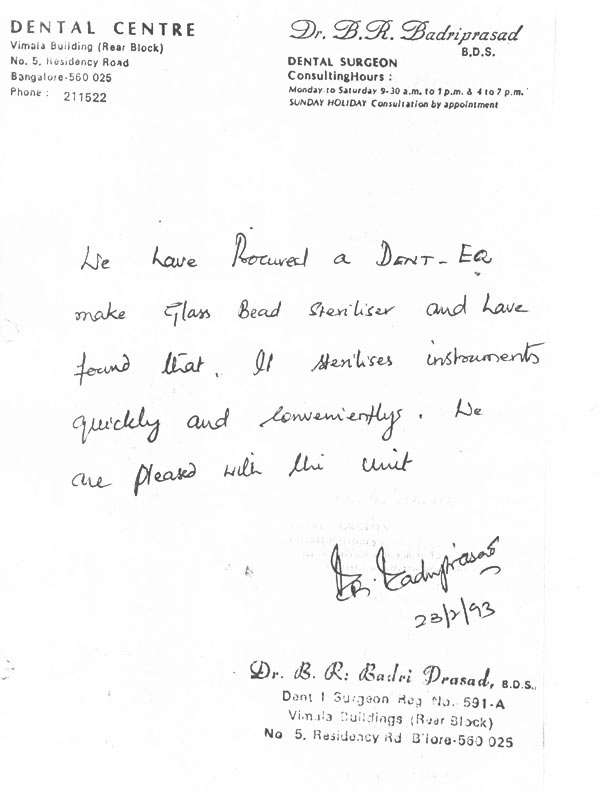 DENTAL CENTRE
Vimala Building (Rear Block)
No. 5, Residency Road
Bangalore-560 025
Phone : 211522
Dr. B.R. Badriprasad
B.D.S.
DENTAL SURGEON
ConsultingHours :
Monday to Saturday 9-30 a.m. to 1 p.m. & 4 to 7 p.m.
SUNDAY HOLIDAY Consultation by appointment
We have Procured a DENT-EQ
make Glass Bead Steriliser and have
found that. It sterilises instruments
quickly and conveniently. We
are pleased with the unit
Badriprasad
23/2/93
Dr. B. R. Badri Prasad, B.D.S.,
Dent l Surgeon Reg No. 591-A
Vimala Buildings (Rear Block)
No 5, Residency Rd B'lore-560 025